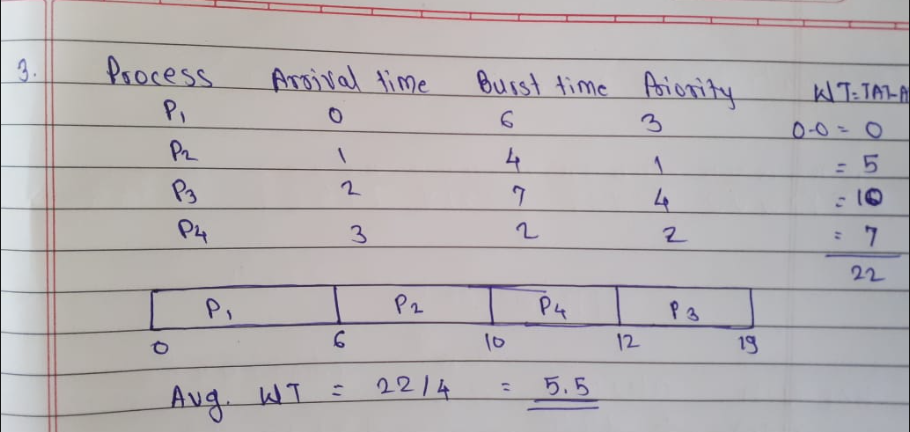 3. Process Arrival time Burst time Priority WT=TAT-A
P1 0 6 3 0-0 = 0
P2 1 4 1 = 5
P3 2 7 4 = 10
P4 3 2 2 = 7
22
P1 P2 P4 P3
0 6 10 12 19
Avg. WT = 22/4 = 5.5